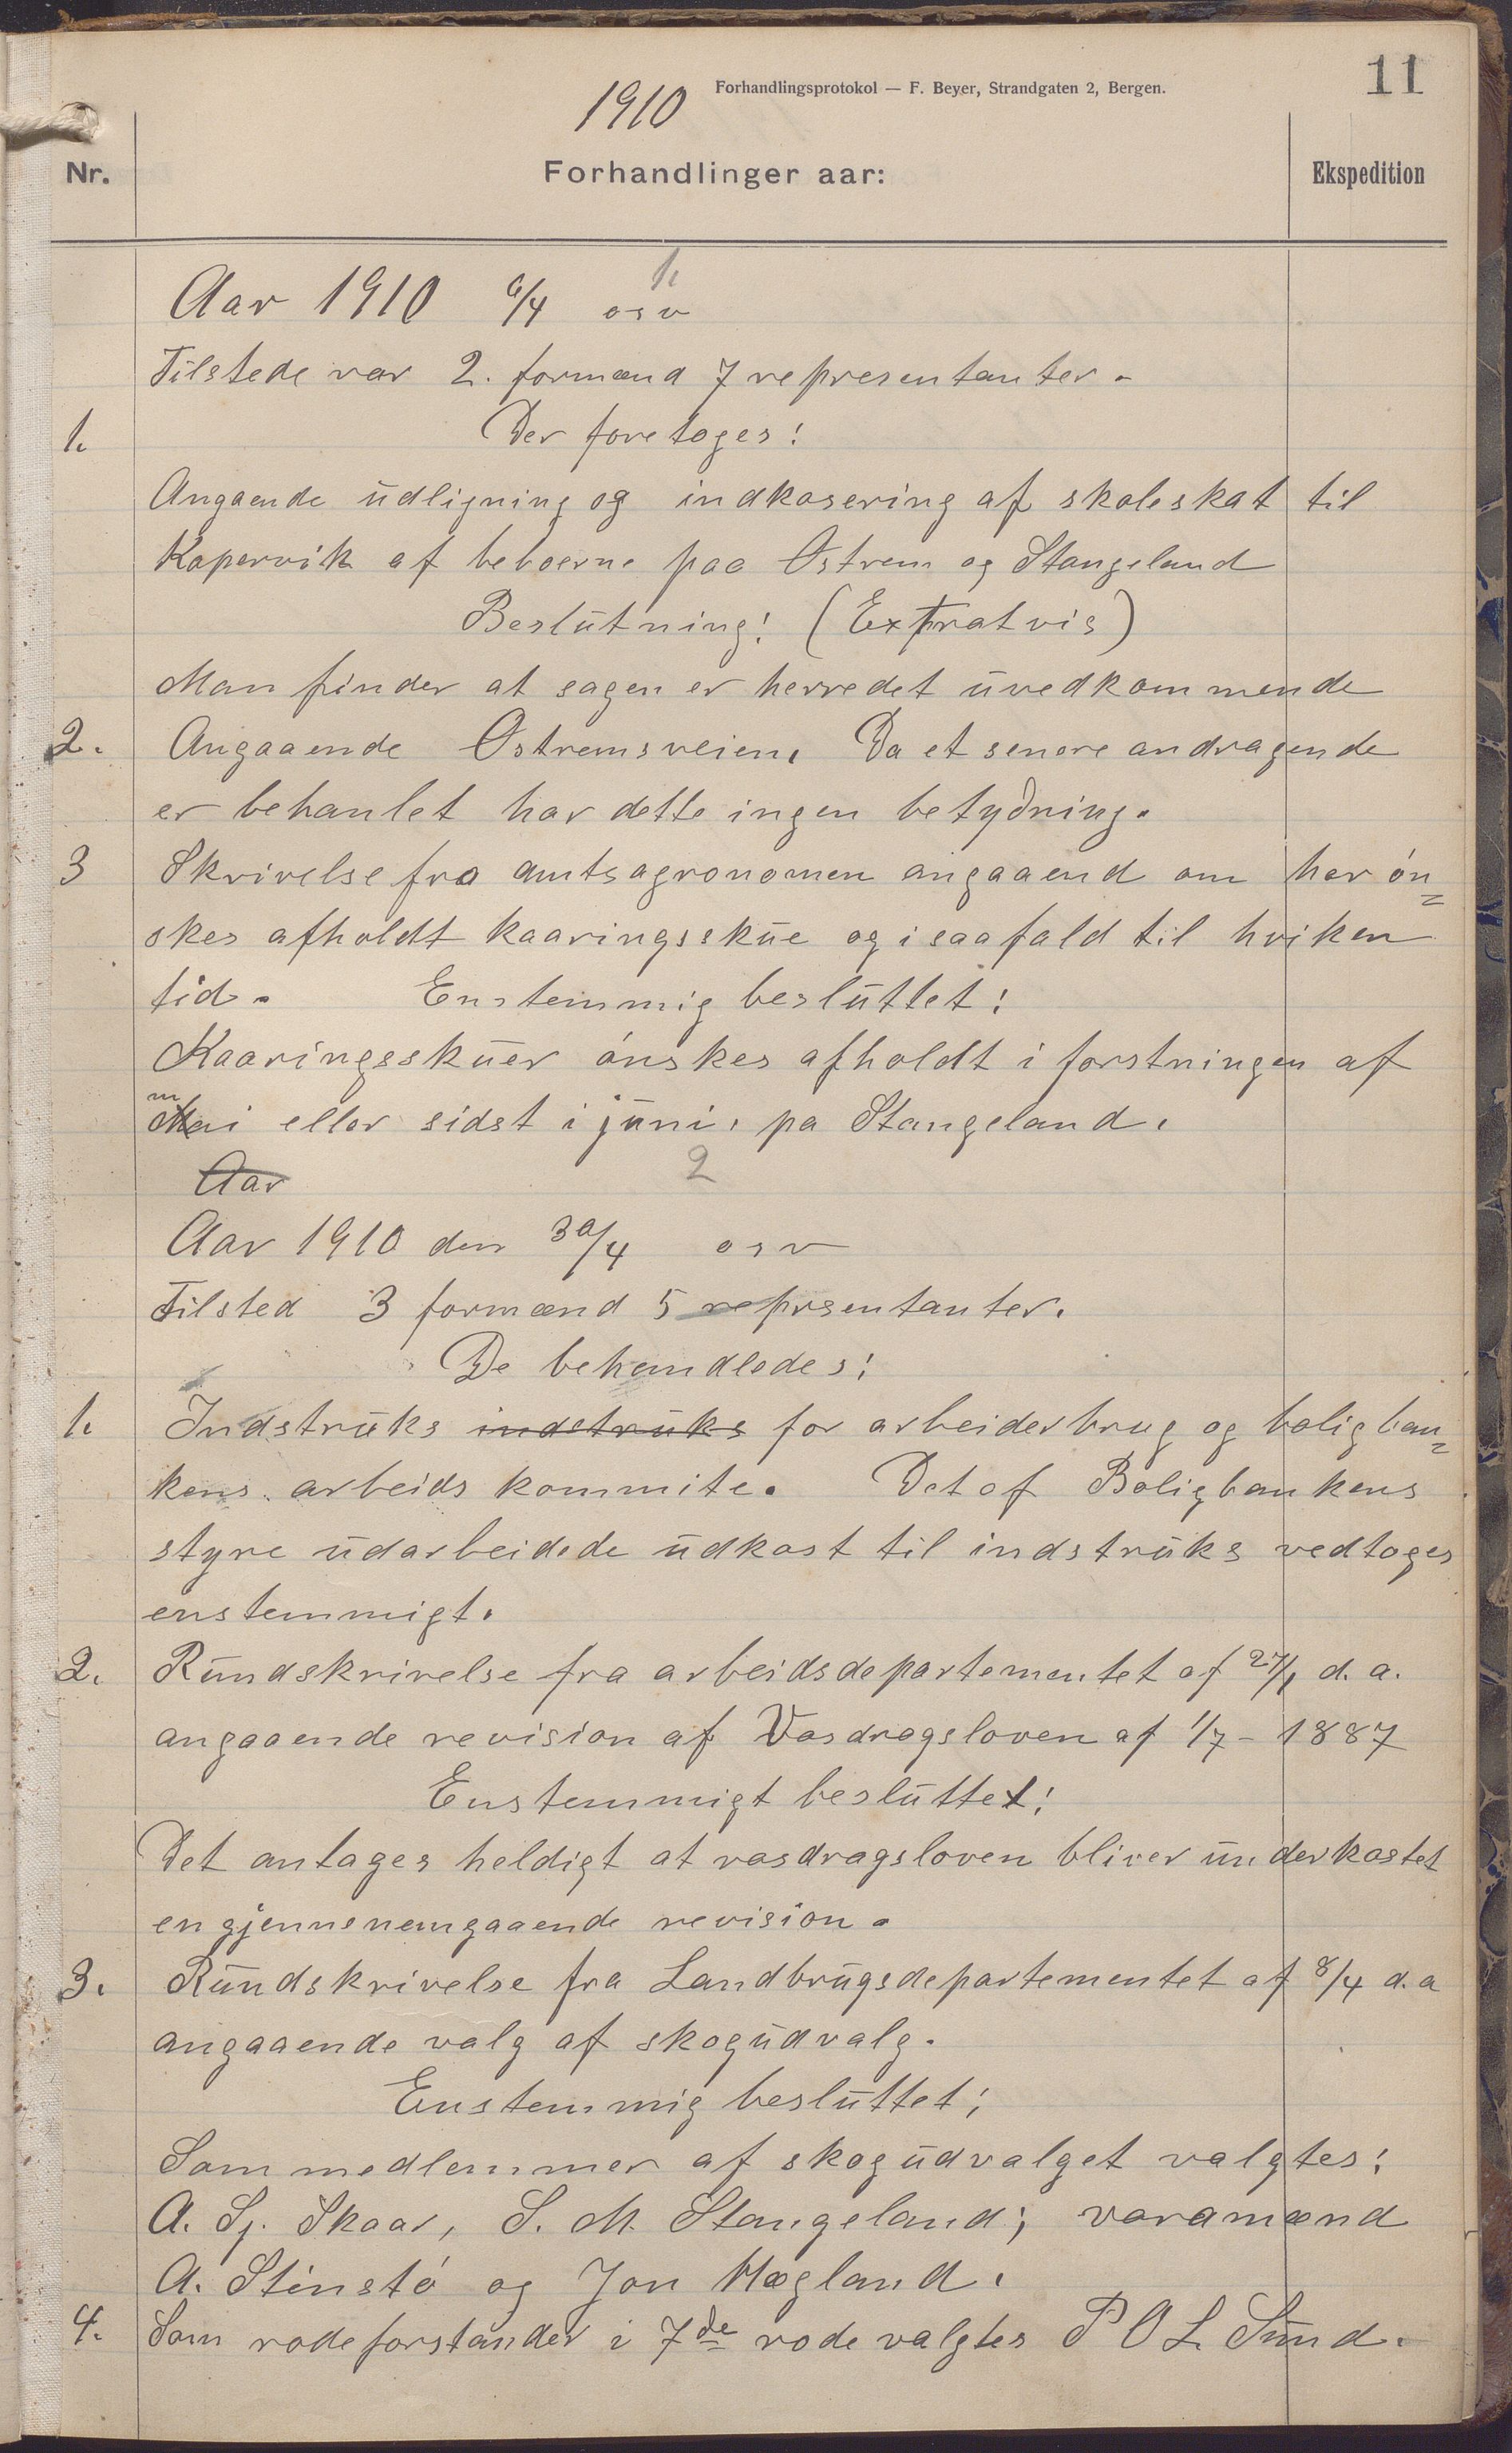 11
Forhandlingsprotokol — F. Beyer, Strandgaten 2, Bergen.
1910
Nr.
Forhandlinger aar:
Ekspedition
1.
Aar 1910 6/4 osv
Tilstede var 2. formænd 7 representanter.
1. Der foretoges:
Angaende udligning og indkasering af skoleskat til
Kopervik af beboerne paa Østrem og Stangeland
Beslutning: (Extratvis)
Man finder at sagen er herredet uvedkommende
2. Angaaende Østremsveien. Da et senere andragende
er behanlet har dette ingen betydning.
3 Skrivelse fra amtsagronomen angaaend om her øn=
skes afholdt kaaringsskue og i saafald til hviken
tid. Enstemmig besluttet:
Kaaringsskuer ønskes afholdt i forstningen af
mai eller sidst i juni. pa Stangeland.
Aar
2
Aar 1910 den 30/4 osv
Tilsted 3 formænd 5 reprsentanter.
De behandledes:
1. Indstruks indstruks for arbeiderbrug og boligban=
kens arbeids kommite. Det af Boligbankens
styre udarbeidede udkast til indstruks vedtoges
enstemmigt.
2. Rundskrivelse fra arbeidsdepartementet af 27/1 d. a.
angaaende revision af Vasdragsloven af 1/7 - 1887
Enstemmigt besluttet:
Det antages heldigt at vasdragsloven bliver underkastet
en gjennenemgaaende revision.
3. Rundskrivelse fra Landbrugsdepartementet af 8/4 d. a
angaaende valg af skogudvalg.
Enstemmig besluttet:
Som medlemmer af skogudvalget valgtes:
A. Sj. Skaar, S. M. Stangeland; varamænd
A. Stinstø og Jon Hægland.
4. Som rodeforstander i 7de rode valgtes P O L Sund.